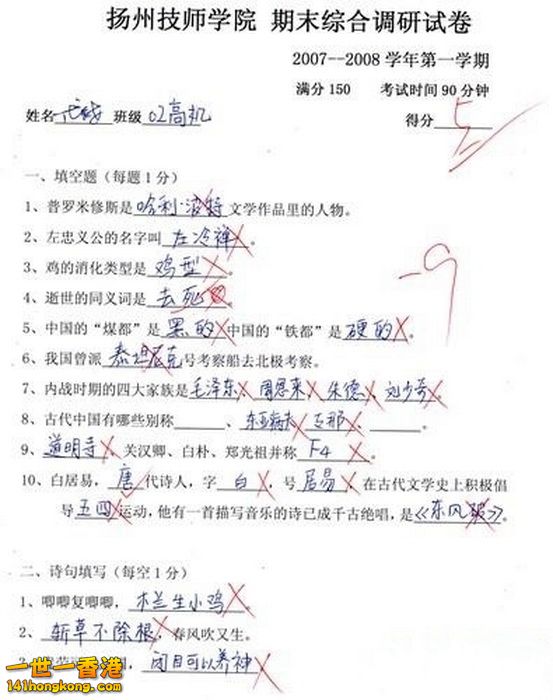 扬州技师学院 期末综合调研试卷
2007--2008 学年第一学期
满分 150 考试时间 90 分钟
姓名 班级 02高机 得分 5
一、填空题（每题 1 分）
1、普罗米修斯是 哈利·波特 文学作品里的人物。
-9
2、左忠义公的名字叫 左冷禅 。
3、鸡的消化类型是 鸡型 。
4、逝世的同义词是 去死 。
5、中国的“煤都”是 黑的 中国的“铁都”是 硬的 。
6、我国曾派 泰坦尼克 号考察船去北极考察。
7、内战时期的四大家族是 毛泽东、周恩来、朱德、刘少奇
8、古代中国有哪些别称______、东亚病夫、支那、______。
9、道明寺、关汉卿、白朴、郑光祖并称 F4 。
10、白居易，唐 代诗人，字 白 ，号 居易 在古代文学史上积极倡
导 五四 运动，他有一首描写音乐的诗已成千古绝唱，是《东风破》。
二、诗句填写（每空 1 分）
1、唧唧复唧唧，木兰生小鸡
2、斩草不除根，春风吹又生。
闭目可以养神
一世一香港
141hongkong.com